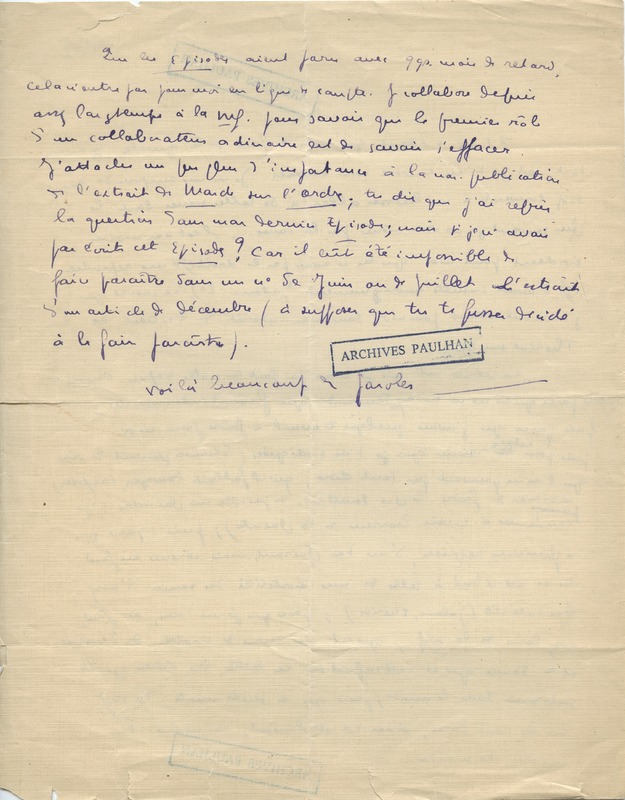 Que les Episodes aient paru avec qqs. mois de retard,
cela n'entre pas pour moi en ligne de compte. Je collabore depuis
assez longtemps à la nrf. pour savoir que le premier rôle
d'un collaborateur ordinaire est de savoir s'effacer.
J'attache un peu plus d'importance à la non publication
de l'extrait de sur l'ordre; tu dis que j'ai repris
la question dans mon dernier Episode; mais si je n'avais
pas écrit cet Episode? Car il eût été impossible de
faire paraître dans un n° de Juin ou de Juillet l'extrait
d'un article de décembre (à supposer que tu te fusses décidé
à le faire paraître).
ARCHIVES PAULHAN
Voilà beaucoup de paroles